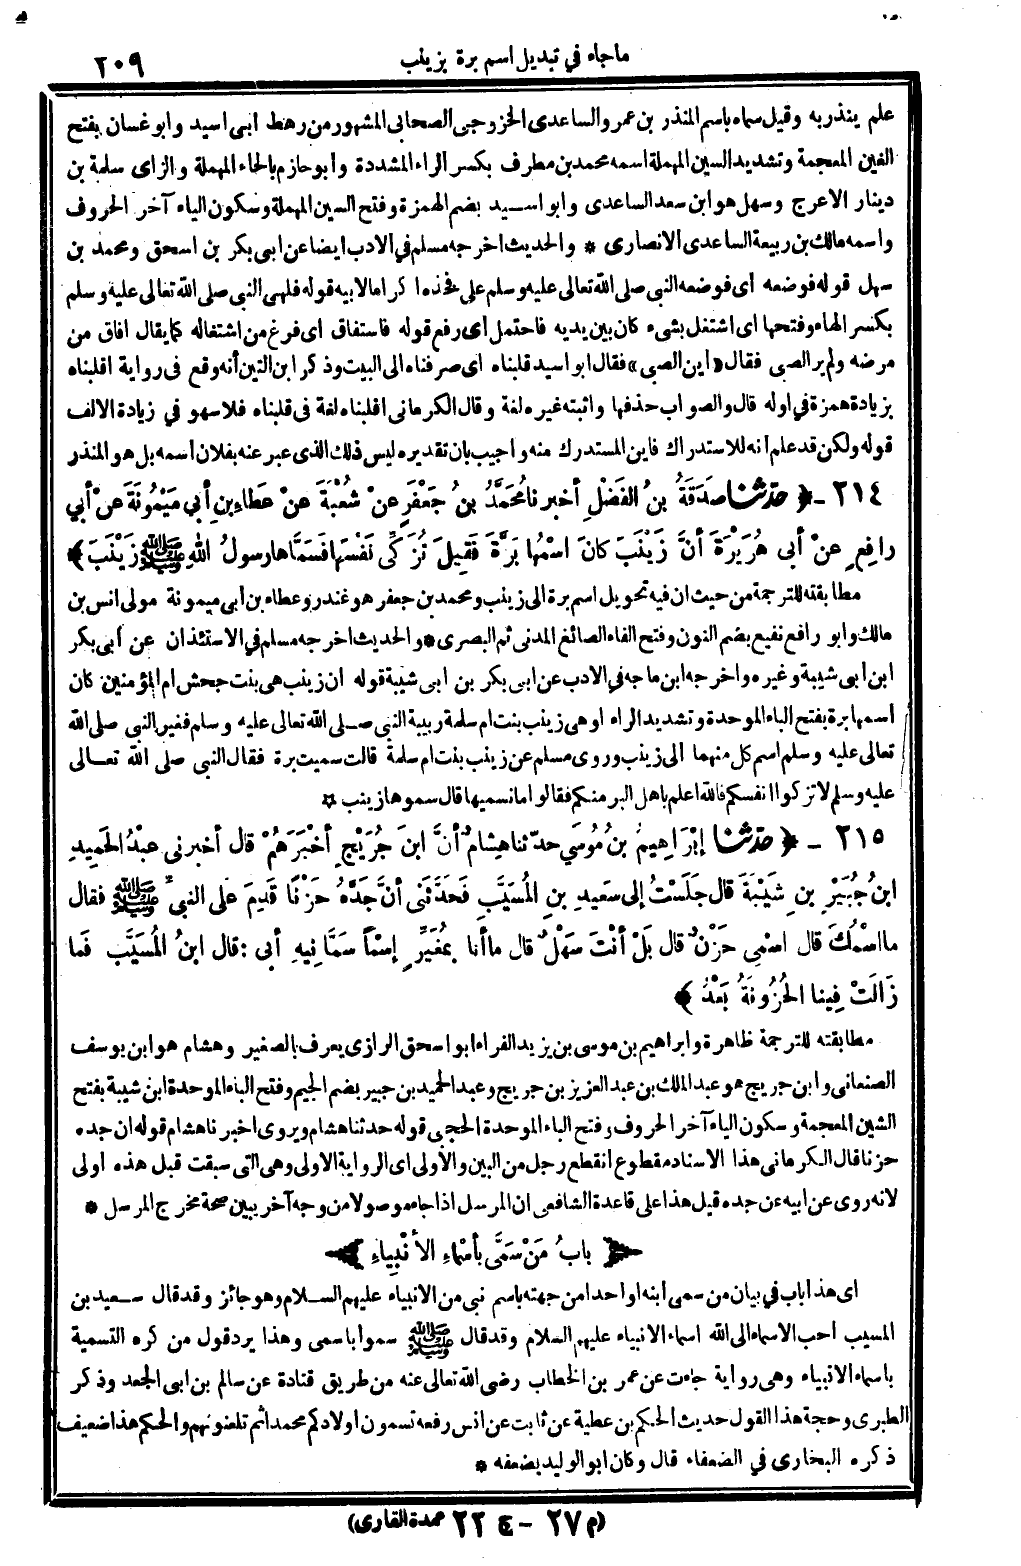 ماجاء في تبديل اسم برة بزينب ٢٠٩
علم ينذر به وقيل سماه باسم المنذر بن عمرو الساعدى الخزوجى الصحابى المشهور من رهط ابى اسيد وابو غسان بفتح
الغين المعجمة وتشديد السين المهملة اسمه محمد بن مطرف بكسر الراء المشددة وابو حازم بالحاء المهملة والزاى سلمة بن
دينار الاعرج وسهل هو ابن سعد الساعدى وابو اسيد بضم الهمزة وفتح السين المهملة وسكون الياء آخر الحروف
واسمه مالك بن ربيعة الساعدى الانصارى * والحديث اخرجه مسلم في الادب ايضا عن ابى بكر بن اسحق ومحمد بن
سهل قوله فوضعه اى فوضعه النبى صلى الله تعالى عليه وسلم على فخذه اكراما لابيه قوله فلهى النبى صلى الله تعالى عليه وسلم
بكسر الهاء وفتحها اى اشتغل بشىء كان بين يديه فاحتمل أى رفع قوله فاستفاق اى فرغ من اشتغاله كما يقال افاق من
مرضه ولم ير الصبى فقال «اين الصبى» فقال ابو اسيد قلبناه اى صرفناه الى البيت وذكر ابن التين أنه وقع فى رواية اقلبناه
بزيادة همزة في اوله قال والصواب حذفها واثبته غيره لغة وقال الكرمانى اقلبناه لغة فى قلبناه فلا سهو في زيادة الالف
قوله ولكن قد علم انه للاستدراك فاين المستدرك منه واجيب بان تقديره ليس ذلك الذى عبر عنه بفلان اسمه بل هو المنذر
٢١٤ - ﴿ حَدَّثَنَا صَدَقَةُ بنُ الفَضْلِ أخبرنا مُحَمَّدُ بنُ جَعْفَرٍ عنْ شُعْبَةَ عنْ عَطاءِ بنِ أبي مَيْمُونَةَ عنْ أبي
رافِعٍ عنْ أبى هُرَيْرَةَ أنَّ زَيْنَبَ كانَ اسْمُها بَرَّةَ فَقِيلَ تُزَكِّى نَفْسَها فَسَمَّاها رسولُ اللهِ ﷺ زَيْنَبَ ﴾
مطابقته للترجمة من حيث ان فيه تحويل اسم برة الى زينب ومحمد بن جعفر هو غندر وعطاء بن ابى ميمونة مولى انس بن
مالك وابو رافع نفيع بضم النون وفتح الفاء الصائغ المدنى ثم البصرى * والحديث اخرجه مسلم في الاستئذان عن أبى بكر
ابن أبى شيبة وغيره واخرجه ابن ماجه في الادب عن ابى بكر بن ابى شيبة قوله ان زينب هى بنت جحش ام المؤمنين كان
اسمها برة بفتح الباء الموحدة وتشديد الراء اوهى زينب بنت ام سلمة ربيبة النبى صلى الله تعالى عليه وسلم فغير النبى صلى الله
تعالى عليه وسلم اسم كل منهما الى زينب وروى مسلم عن زينب بنت ام سلمة قالت سميت برة فقال النبى صلى الله تعالى
عليه وسلم لا تزكوا انفسكم فالله اعلم باهل البر منكم فقالوا ما نسميها قال سموها زينب *
٢١٥ - ﴿ حَدَّثَنَا إبْرَاهِيمُ بنُ مُوسَي حدّثنا هِشامٌ أنَّ ابنَ جُرَيْجٍ أخْبَرَهُمْ قال أخبرنى عبْدُ الحَمِيدِ
ابنُ جُبَيْرِ بنِ شَيْبَةَ قال جَلَسْتُ إلى سَعِيدِ بنِ المُسَيَّبِ فَحَدَّثَنى أنَّ جَدَّهُ حَزْنًا قَدِمَ على النبىِّ ﷺ فقال
ما اسْمُكَ قال اسْمِى حَزْنٌ قال بَلْ أنْتَ سَهْلٌ قال ما أنا بِمُغَيِّرٍ إسْمًا سَمَّانِيهِ أبى : قال ابنُ المُسَيَّبِ فَما
زَالَتْ فِينا الحُزُونَةُ بَعْدُ ﴾
مطابقته للترجمة ظاهرة وابراهيم بن موسى بن يزيد الفراء ابو اسحق الرازى يعرف بالصغير وهشام هو ابن يوسف
الصنعانى وابن جريج هو عبد الملك بن عبد العزيز بن جريج وعبد الحميد بن جبير بضم الجيم وفتح الباء الموحدة ابن شيبة بفتح
الشين المعجمة وسكون الياء آخر الحروف وفتح الباء الموحدة الحجبى قوله حدثنا هشام ويروى اخبرنا هشام قوله ان جده
حزنا قال الكرمانى هذا الاسناد مقطوع انقطع رجل من البين والأولى اى الرواية الاولى وهى التى سبقت قبل هذه اولى
لانه روى عن ابيه عن جده قيل هذا على قاعدة الشافعى ان المرسل اذا جاء موصولا من وجه آخر يبين صحة مخرج المرسل *
﴿ بابُ مَنْ سَمَّى بأسْماءِ الأنْبِياءِ ﴾
اى هذا باب في بيان من سمى ابنه او احدا من جهته باسم نبى من الانبياء عليهم السلام وهو جائز وقد قال سعيد بن
المسيب أحب الاسماء الى الله اسماء الانبياء عليهم السلام وقد قال ﷺ سموا باسمى وهذا يرد قول من كره التسمية
باسماء الانبياء وهى رواية جاءت عن عمر بن الخطاب رضى الله تعالى عنه من طريق قتادة عن سالم بن ابى الجعد وذكر
الطبرى وحجة هذا القول حديث الحكم بن عطية عن ثابت عن انس رفعه تسمون اولادكم محمدا ثم تلعنونهم والحكم هذا ضعيف
ذكره البخارى في الضعفاء قال وكان ابو الوليد يضعفه *
(م ٢٧ - ج ٢٢ عمدة القارى)